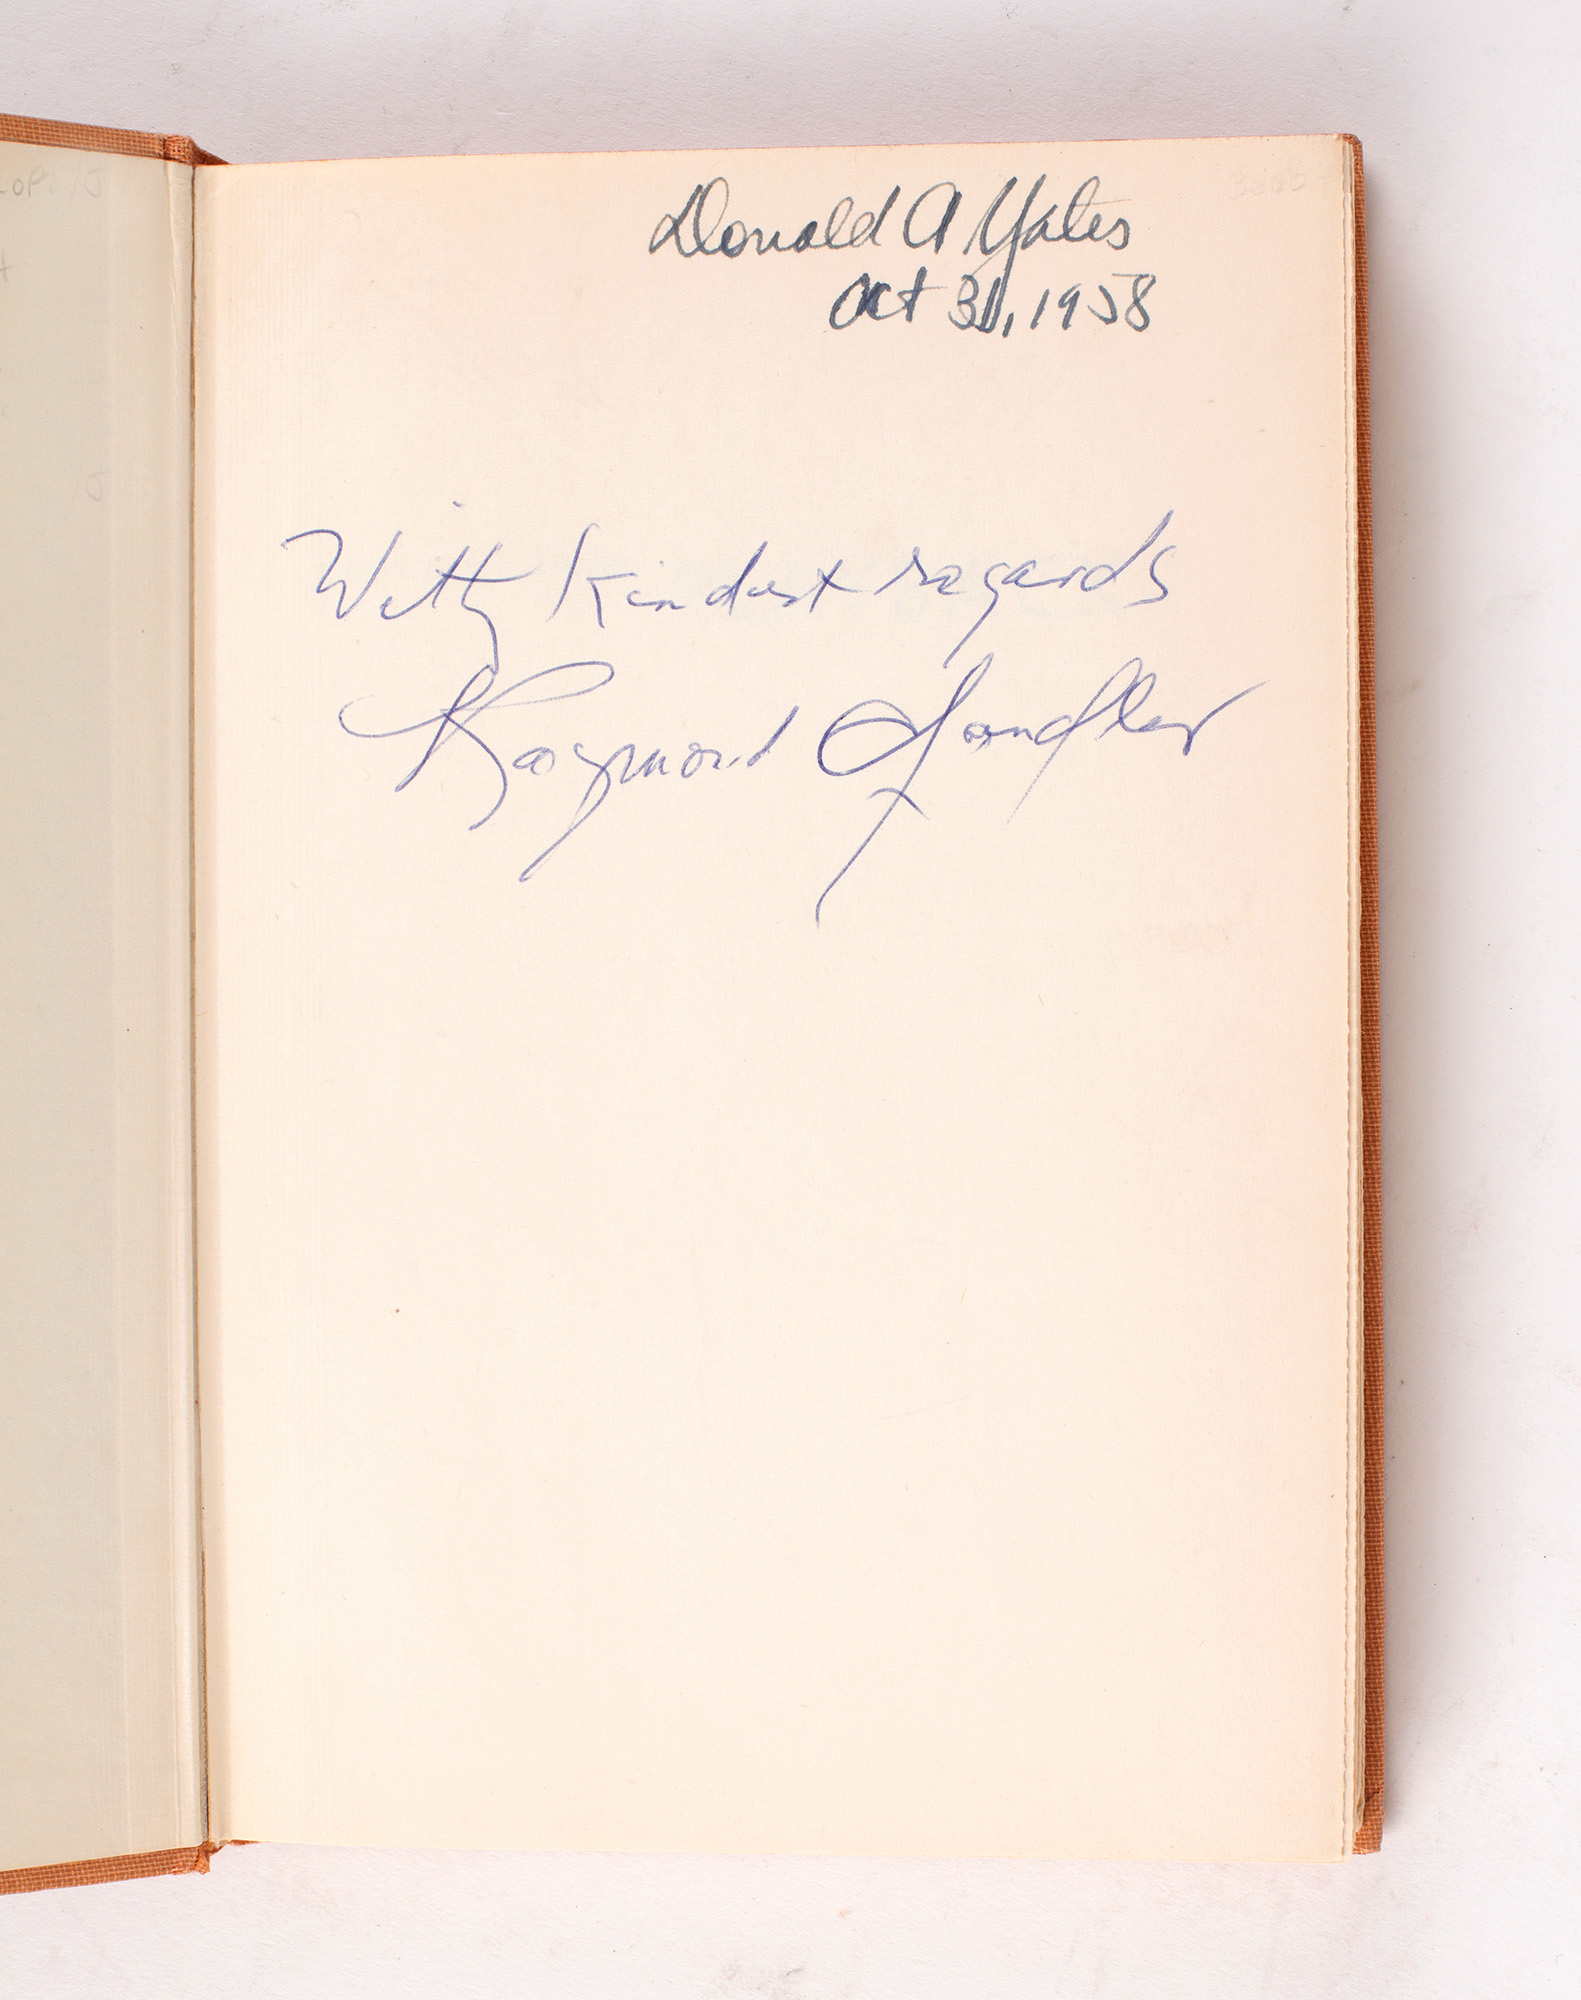 Donald A Yates
Oct 31, 1958
With kindest regards
Raymond Chandler